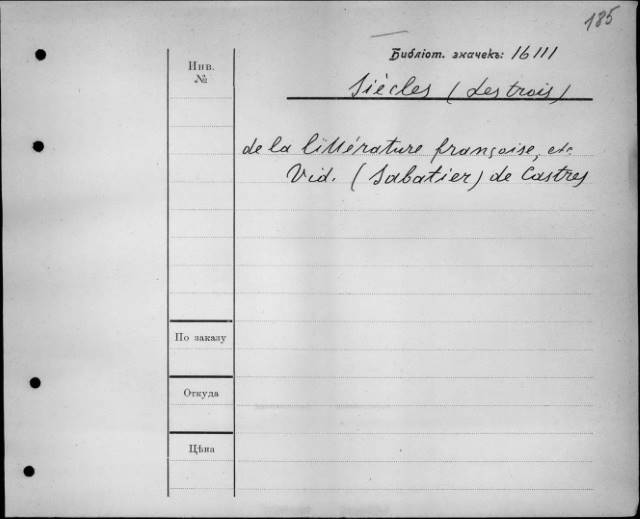 185
Библіот. значекъ: 16111
Инв.
№
Siècles (Les trois)
de la littérature françoise, etc
Vid. (Sabatier) de Castres
По заказу
Откуда
Цѣна